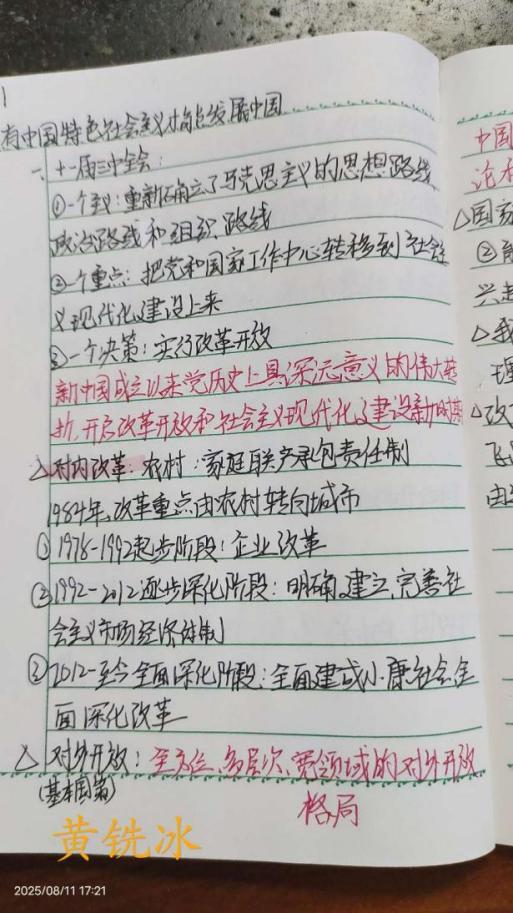 1
有中国特色社会主义 发展中国
一、十一届三中全会:
①一个主义:重新确立了马克思主义的思想路线
政治路线和组织路线
②一个重点:把党和国家工作中心转移到社会主
义现代化建设上来
③一个决策:实行改革开放
新中国成立以来党历史上具深远意义的伟大转
折,开启改革开放和社会主义现代化建设新时期
△对内改革:农村:家庭联产承包责任制
1984年,改革重点由农村转向城市
①1978-1992起步阶段:企业改革
②1992-2012逐步深化阶段:明确、建立、完善社
会主义市场经济体制
②2012-至今全面深化阶段:全面建成小康社会,全
面深化改革
△对外开放:全方位、多层次、宽领域的对外开放
(基本国策)
格局
中国
论和
△国家
②能
兴起
△我
理
△改
飞
由
黄铣冰
2025/08/11 17:21